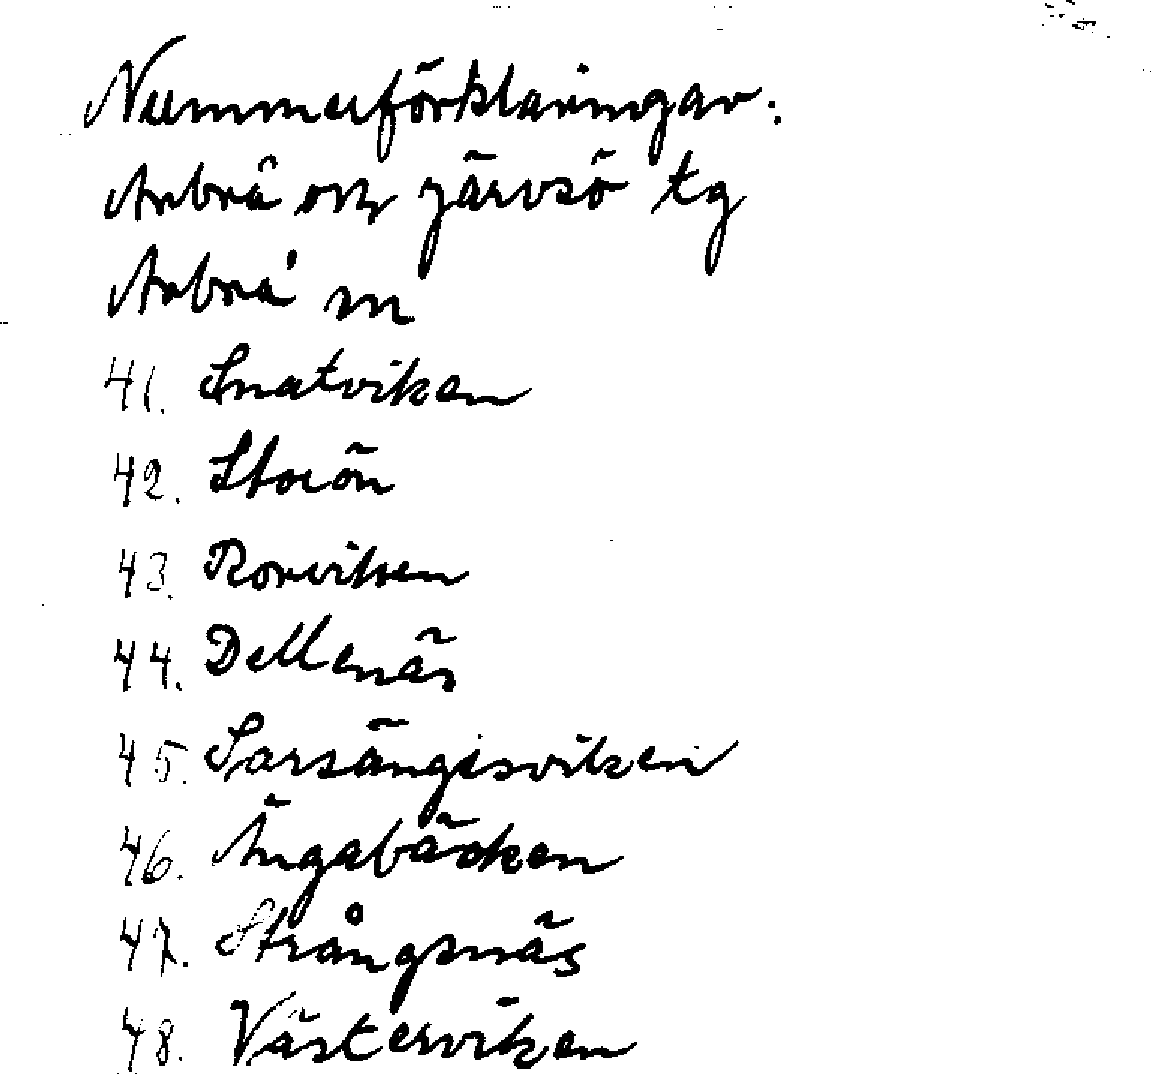 Nummerförklaringar:
Arbrå och Järvsö tg
Arbrå sn
41. Snatviken
42. Storön
43. Rorviken
44. Dellenäs
45. Sarsängisviken
46. Ängabäcken
47. Strångsnäs
48. Västerviken